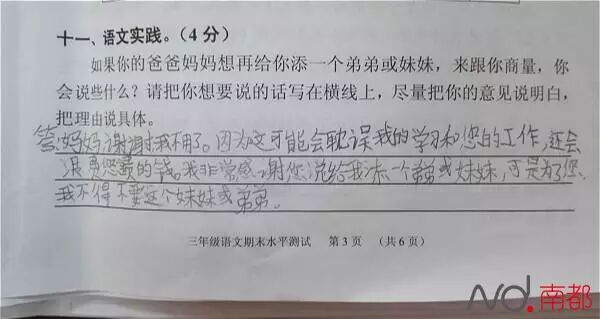 十一、语文实践。（4分）
如果你的爸爸妈妈想再给你添一个弟弟或妹妹，来跟你商量，你
会说些什么？请把你想要说的话写在横线上，尽量把你的意见说明白，
把理由说具体。
答：妈妈谢谢我不用了。因为这可能会耽误我的学习和您的工作，还会
浪费您的钱。我非常感谢您说给我添一个弟弟或妹妹，可是为了您，
我不得不要这个妹妹或弟弟。
三年级语文期末水平测试 第3页 （共6页）
Nd.南都